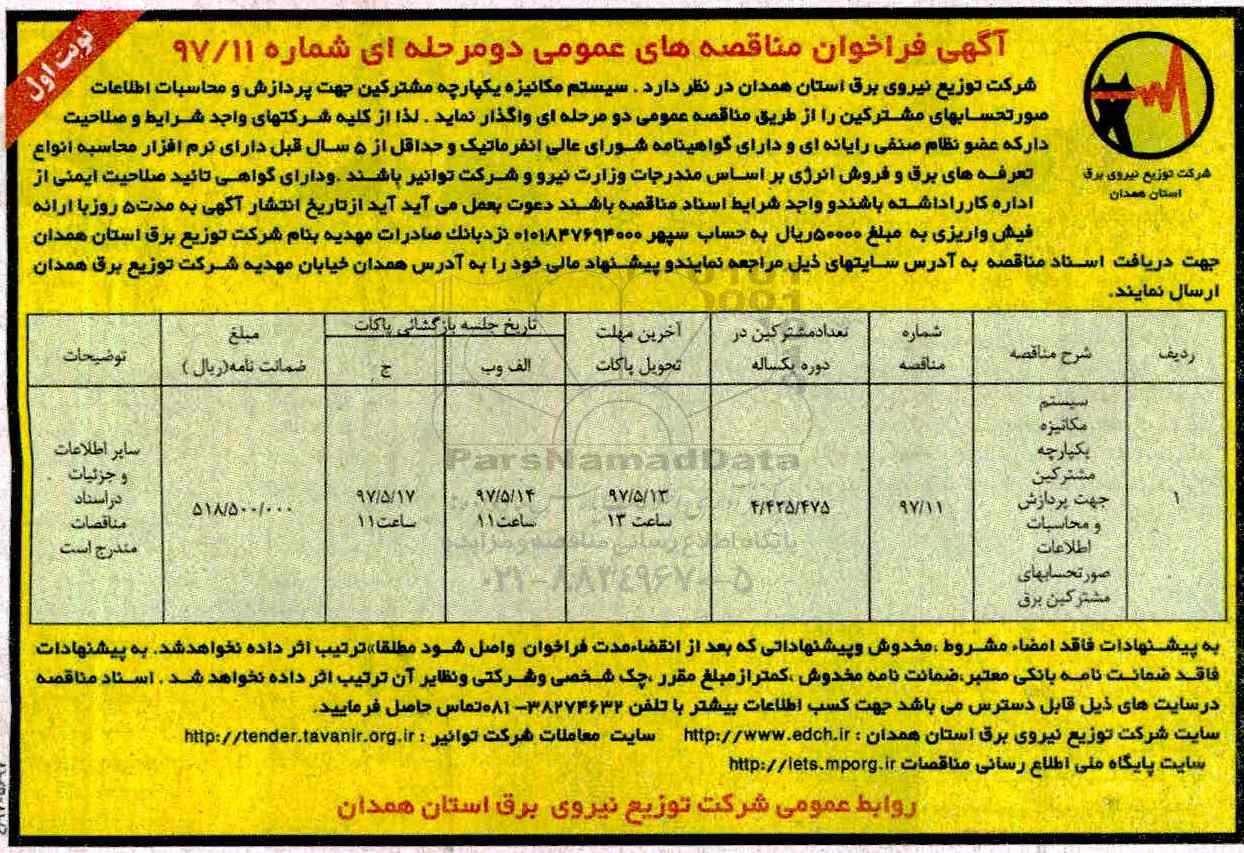 نوبت اول
آگهی فراخوان مناقصه های عمومی دومرحله ای شماره ۹۷/۱۱
شرکت توزیع نیروی برق
استان همدان
شرکت توزیع نیروی برق استان همدان در نظر دارد . سیستم مکانیزه یکپارچه مشترکین جهت پردازش و محاسبات اطلاعات
صورتحسابهای مشترکین را از طریق مناقصه عمومی دو مرحله ای واگذار نماید . لذا از کلیه شرکتهای واجد شرایط و صلاحیت
دارکه عضو نظام صنفی رایانه ای و دارای گواهینامه شورای عالی انفرماتیک و حداقل از ۵ سال قبل دارای نرم افزار محاسبه انواع
تعرفه های برق و فروش انرژی بر اساس مندرجات وزارت نیرو و شرکت توانیر باشند .ودارای گواهی تائید صلاحیت ایمنی از
اداره کارراداشته باشندو واجد شرایط اسناد مناقصه باشند دعوت بعمل می آید آید ازتاریخ انتشار آگهی به مدت۵ روزبا ارائه
فیش واریزی به مبلغ ۵۰۰۰۰ریال به حساب سپهر ۰۱۰۱۸۴۷۶۹۴۰۰۰ نزدبانک صادرات مهدیه بنام شرکت توزیع برق استان همدان
جهت دریافت اسناد مناقصه به آدرس سایتهای ذیل مراجعه نمایندو پیشنهاد مالی خود را به آدرس همدان خیابان مهدیه شرکت توزیع برق همدان
ارسال نمایند.
ردیف
شرح مناقصه
شماره
مناقصه
تعدادمشترکین در
دوره یکساله
آخرین مهلت
تحویل پاکات
تاریخ جلسه بازگشائی پاکات
الف وب
ج
مبلغ
ضمانت نامه(ریال )
توضیحات
۱
سیستم
مکانیزه
یکپارچه
مشترکین
جهت پردازش
و محاسبات
اطلاعات
صورتحسابهای
مشترکین برق
۹۷/۱۱
۴/۴۲۵/۴۷۵
۹۷/۵/۱۳
ساعت ۱۳
۹۷/۵/۱۴
ساعت۱۱
۹۷/۵/۱۷
ساعت۱۱
۵۱۸/۵۰۰/۰۰۰
سایر اطلاعات
و جزئیات
دراسناد
مناقصات
مندرج است
ParsNamadData
پایگاه اطلاع رسانی مناقصه و مزایده
۰۲۱-۸۸۳۴۹۶۷۰-۵
به پیشنهادات فاقد امضاء مشروط ،مخدوش وپیشنهاداتی که بعد از انقضاءمدت فراخوان واصل شود مطلقا»ترتیب اثر داده نخواهدشد. به پیشنهادات
فاقد ضمانت نامه بانکی معتبر،ضمانت نامه مخدوش ،کمترازمبلغ مقرر ،چک شخصی وشرکتی ونظایر آن ترتیب اثر داده نخواهد شد . اسناد مناقصه
درسایت های ذیل قابل دسترس می باشد جهت کسب اطلاعات بیشتر با تلفن ۳۸۲۷۴۶۳۲-۰۸۱تماس حاصل فرمایید.
سایت شرکت توزیع نیروی برق استان همدان : http://www.edch.ir سایت معاملات شرکت توانیر : http://tender.tavanir.org.ir
سایت پایگاه ملی اطلاع رسانی مناقصات http://iets.mporg.ir
روابط عمومی شرکت توزیع نیروی برق استان همدان